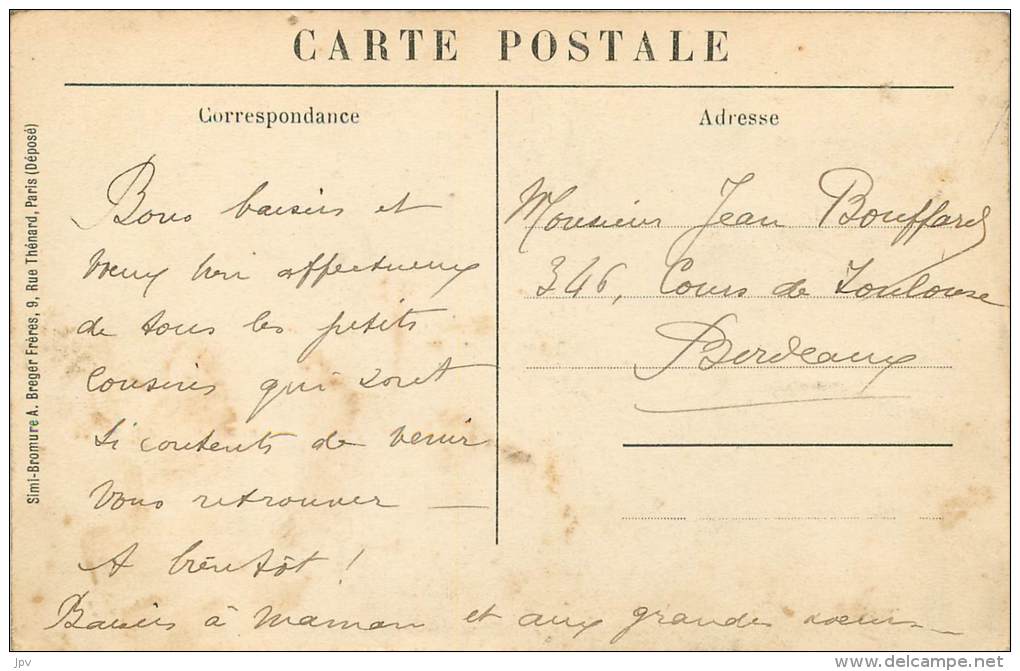 CARTE POSTALE
Correspondance
Bons baisers et
vœux bien affectueux
de tous les petits
cousins qui sont
si contents de venir
vous retrouver —
A bientôt !
Baisers à maman et aux grandes sœurs —
Adresse
Monsieur Jean Bouffard
346, Cours de Toulouse
Bordeaux
Simi-Bromure A. Breger Frères, 9, Rue Thénard, Paris (Déposé)
jpv
http://www.delcampe.net